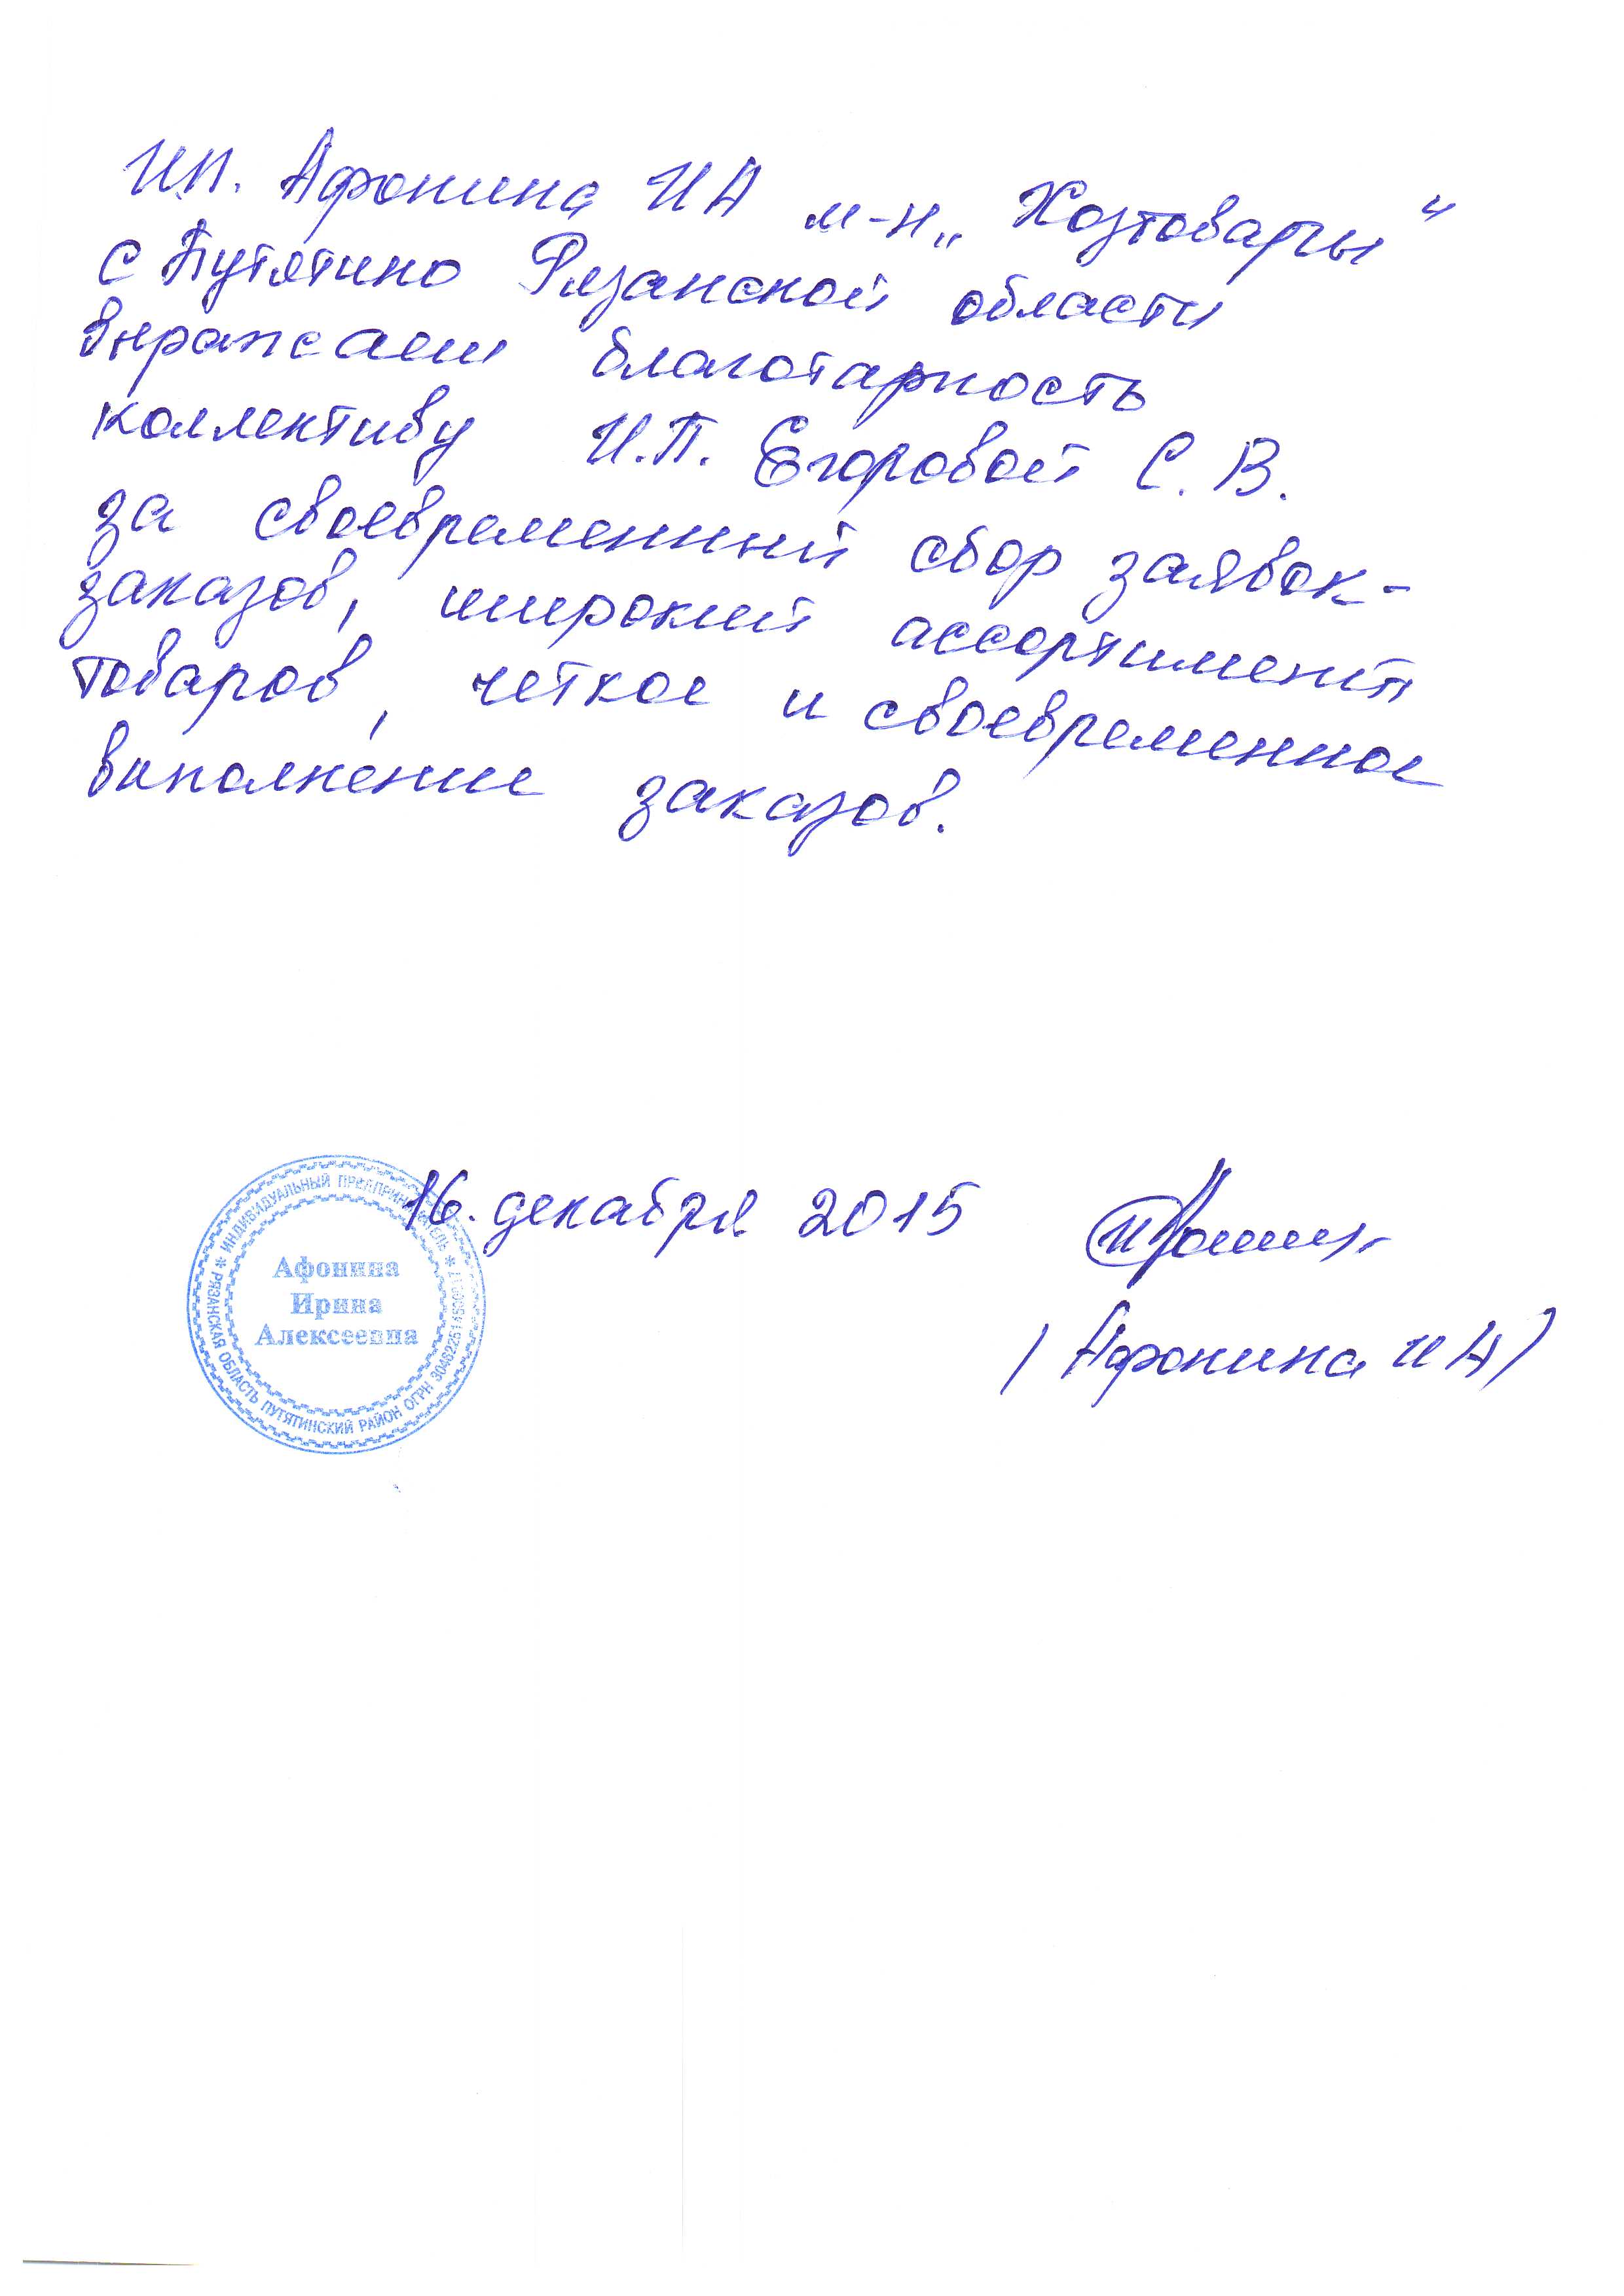 ИП. Афонина И А м-н „Хозтовары"
с Путятино Рязанской области
выражаем благотарность
коллективу И.П. Егоровой С. В.
за своевременный сбор заявок-
заказов, широкий ассортимент
товаров, четкое и своевременное
выполнение заказов.
16. декабря 2015
(Афонина И А)
* ИНДИВИДУАЛЬНЫЙ ПРЕДПРИНИМАТЕЛЬ *
РЯЗАНСКАЯ ОБЛАСТЬ ПУТЯТИНСКИЙ РАЙОН ОГРН
Афонина
Ирина
Алексеевна